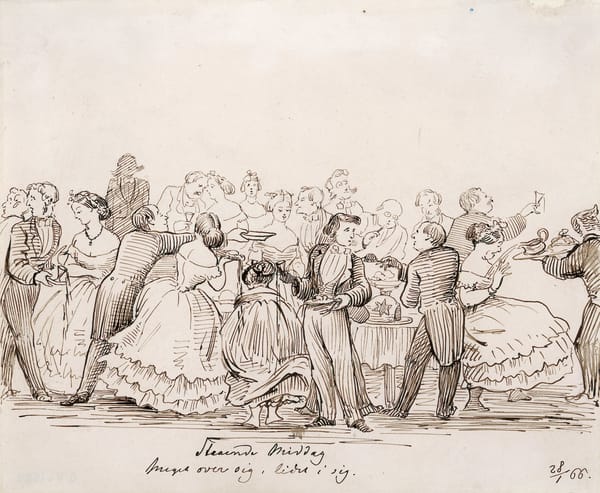 Staaende Middag
Meget over sig, lidet i sig.
28/1 66.